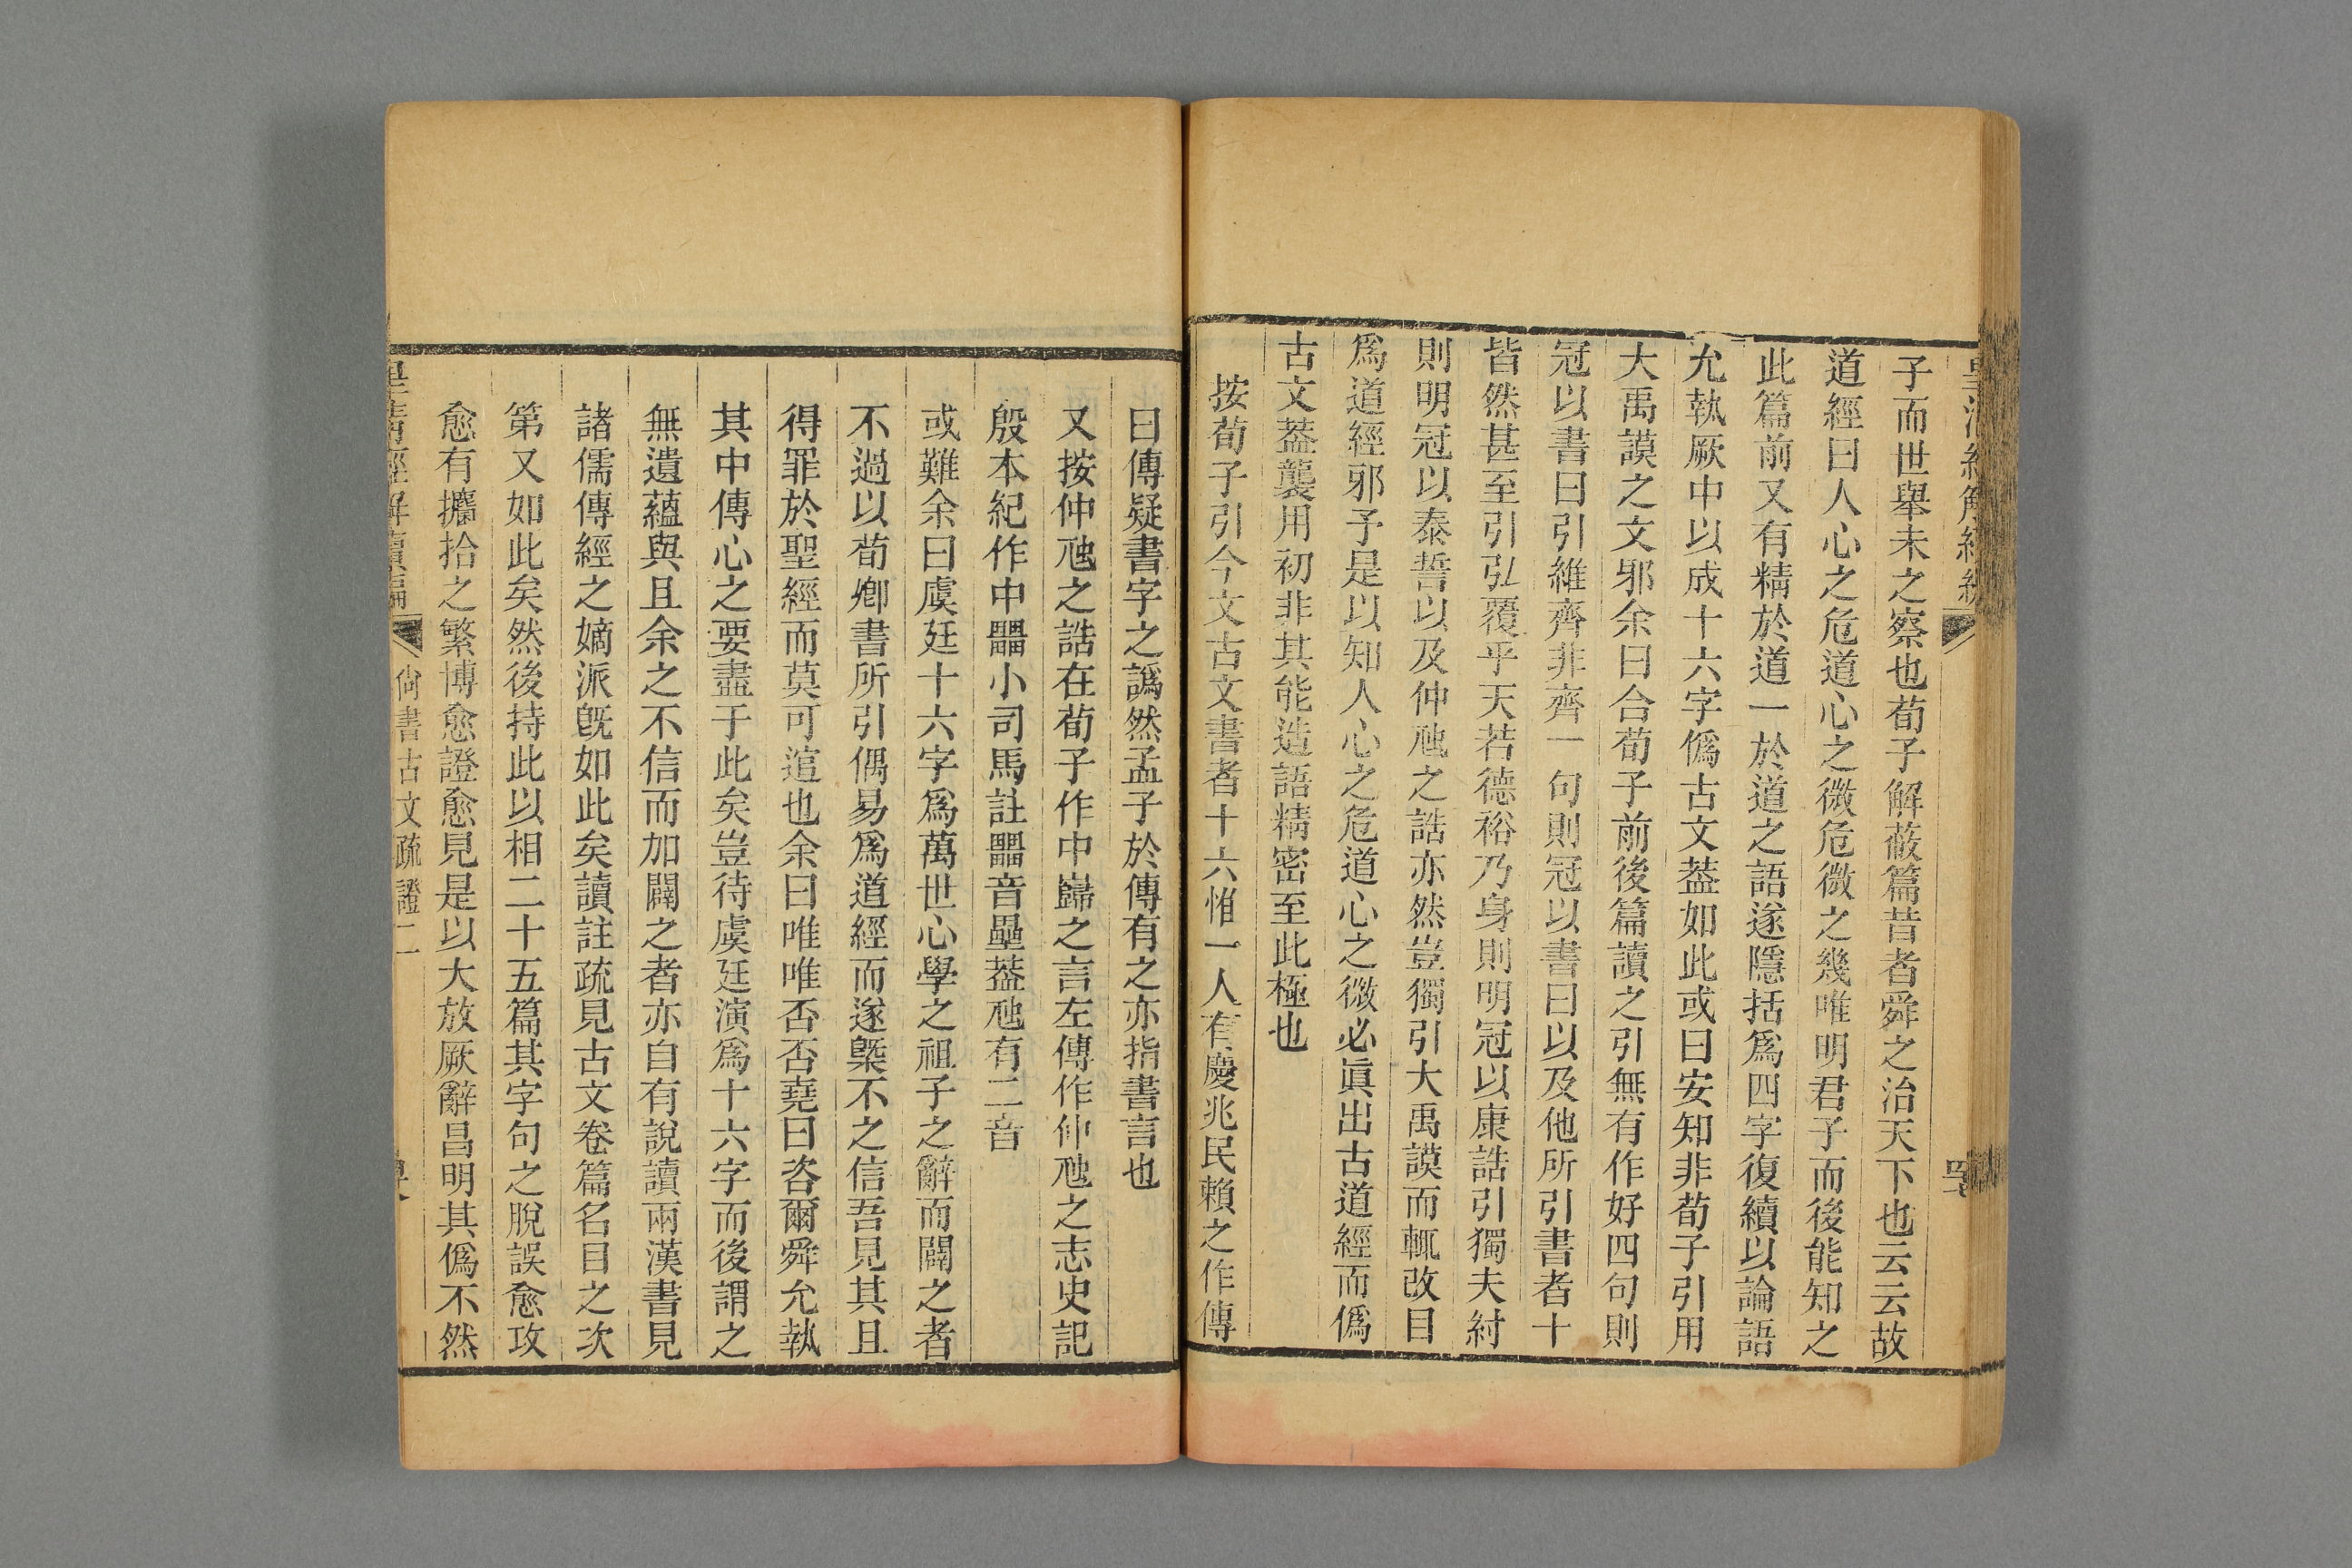 子而世舉未之察也荀子解蔽篇昔者舜之治天下也云云故
道經曰人心之危道心之微危微之幾唯明君子而後能知之
此篇前又有精於道一於道之語遂隱括爲四字復續以論語
允執厥中以成十六字僞古文葢如此或曰安知非荀子引用
大禹謨之文邪余曰合荀子前後篇讀之引無有作好四句則
冠以書曰引維齊非齊一句則冠以書曰以及他所引書者十
皆然甚至引弘覆乎天若德裕乃身則明冠以康誥引獨夫紂
則明冠以泰誓以及仲虺之誥亦然豈獨引大禹謨而輒改目
爲道經邪予是以知人心之危道心之微必眞出古道經而僞
古文葢襲用初非其能造語精密至此極也
按荀子引今文古文書者十六惟一人有慶兆民賴之作傳
曰傳疑書字之譌然孟子於傳有之亦指書言也
又按仲虺之誥在荀子作中蘬之言左傳作仲虺之志史記
殷本紀作中𤳳小司馬註𤳳音壘葢虺有二音
或難余曰虞廷十六字爲萬世心學之祖子之辭而闢之者
不過以荀卿書所引偶易爲道經而遂槩不之信吾見其且
得罪於聖經而莫可逭也余曰唯唯否否堯曰咨爾舜允執
其中傳心之要盡于此矣豈待虞廷演爲十六字而後謂之
無遺蘊與且余之不信而加闢之者亦自有說讀兩漢書見
諸儒傳經之嫡派旣如此矣讀註疏見古文卷篇名目之次
第又如此矣然後持此以相二十五篇其字句之脫誤愈攻
愈有攟拾之繁博愈證愈見是以大放厥辭昌明其僞不然
皇清經解續編
尙書古文疏證二